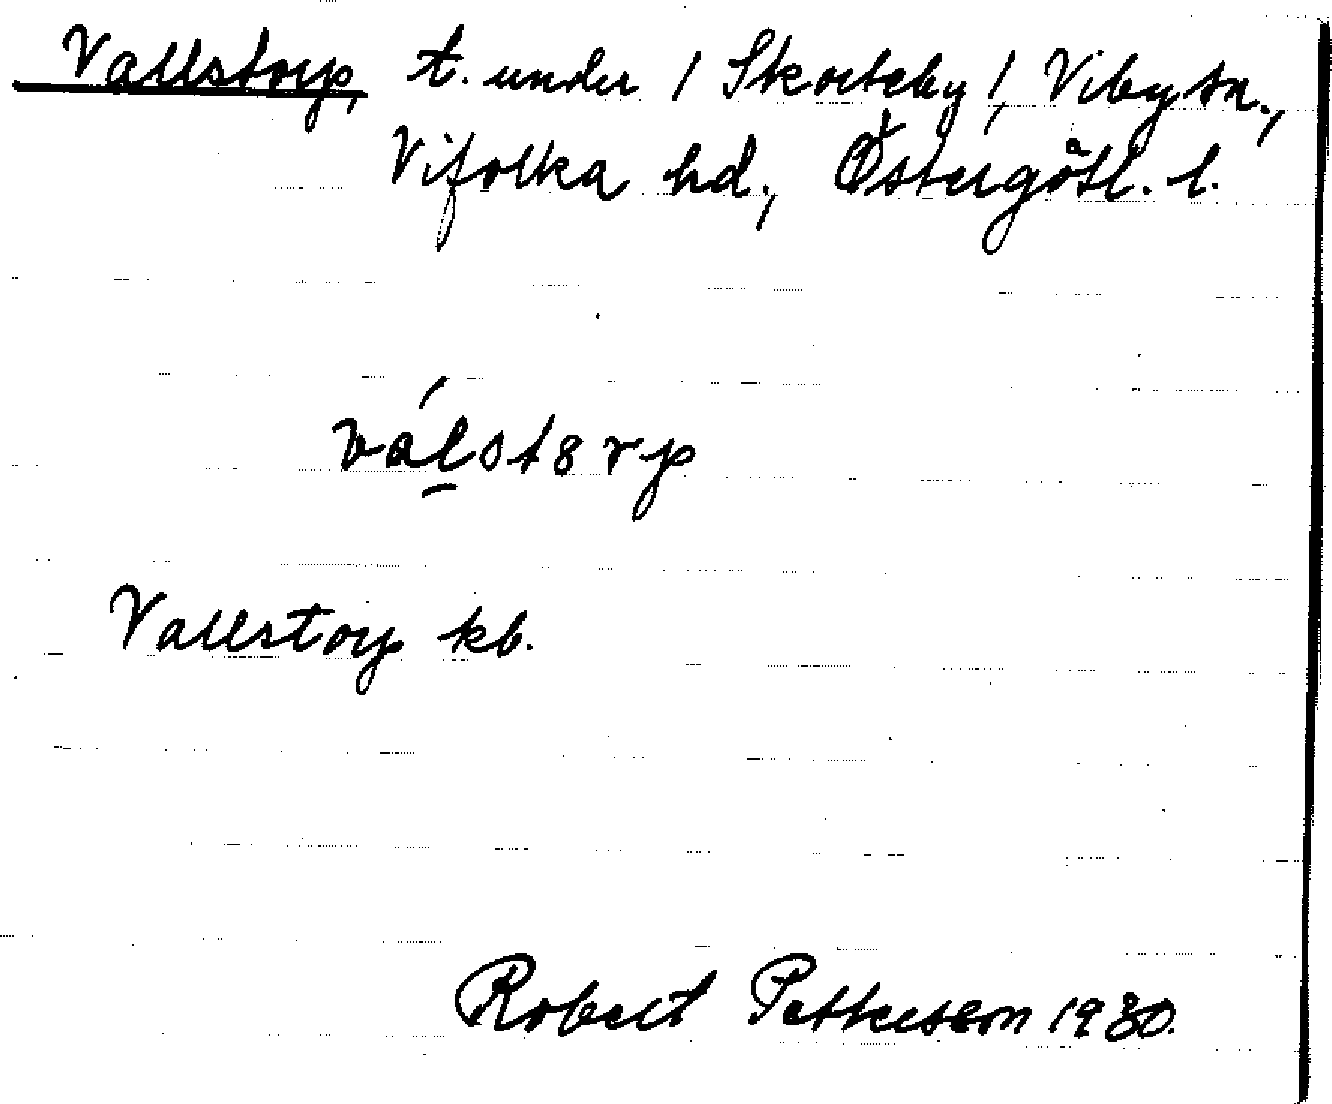 Vallstorp, t. under / Skorteby /, Viby sn.,
Vifolka hd., Östergötl. l.
válst8rp
Vallstorp kb.
Robert Pettersson 1930.